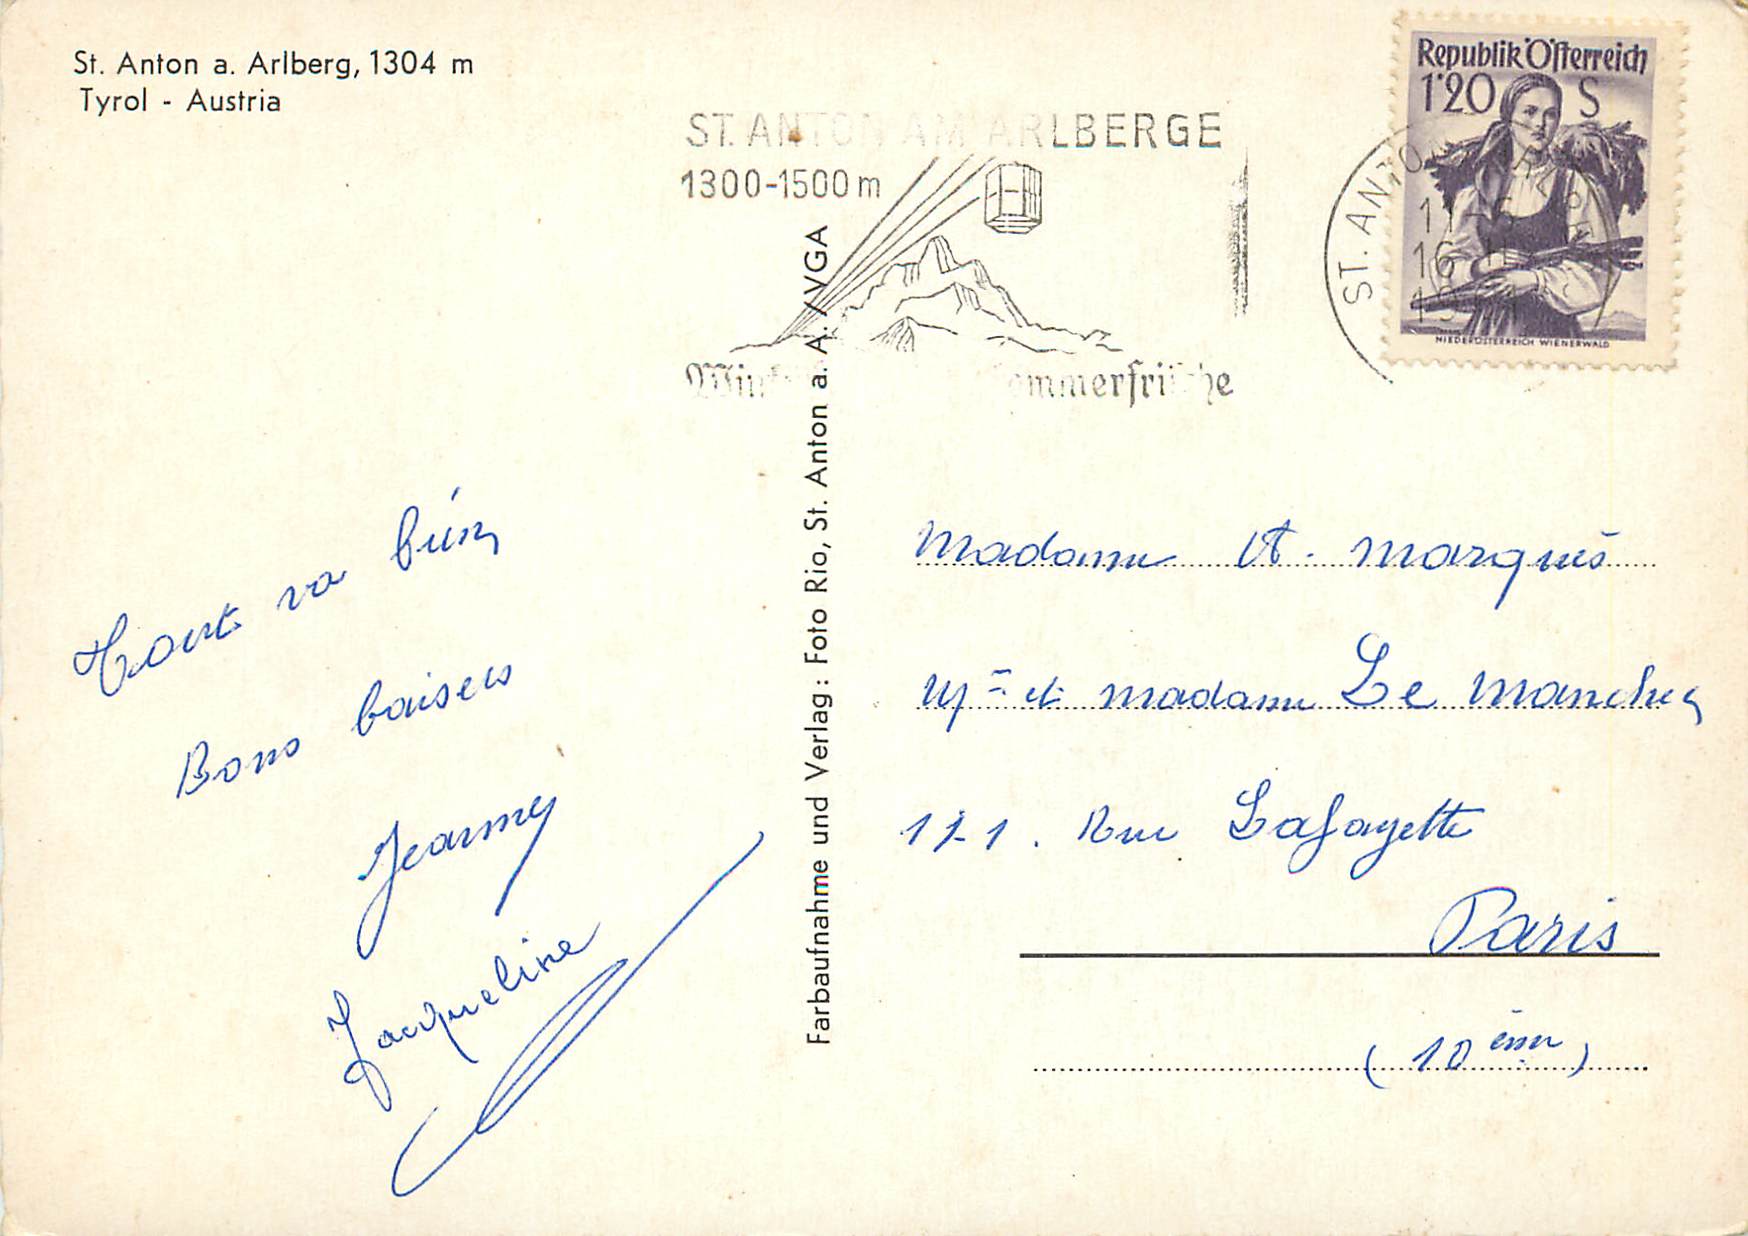 St. Anton a. Arlberg, 1304 m
Tyrol - Austria
ST. ANTON AM ARLBERGE
1300-1500 m
Republik Österreich
1·20 S
NIEDERÖSTERREICH WIENERWALD
ST. ANTON
16
Farbaufnahme und Verlag : Foto Rio, St. Anton a. A. / VGA
Tout va bien
Bons baisers
Jeanny
Jacqueline
Madame A. Marquès
Mr et Madame Le Manchec
121. Rue Lafayette
Paris
(10 ème)